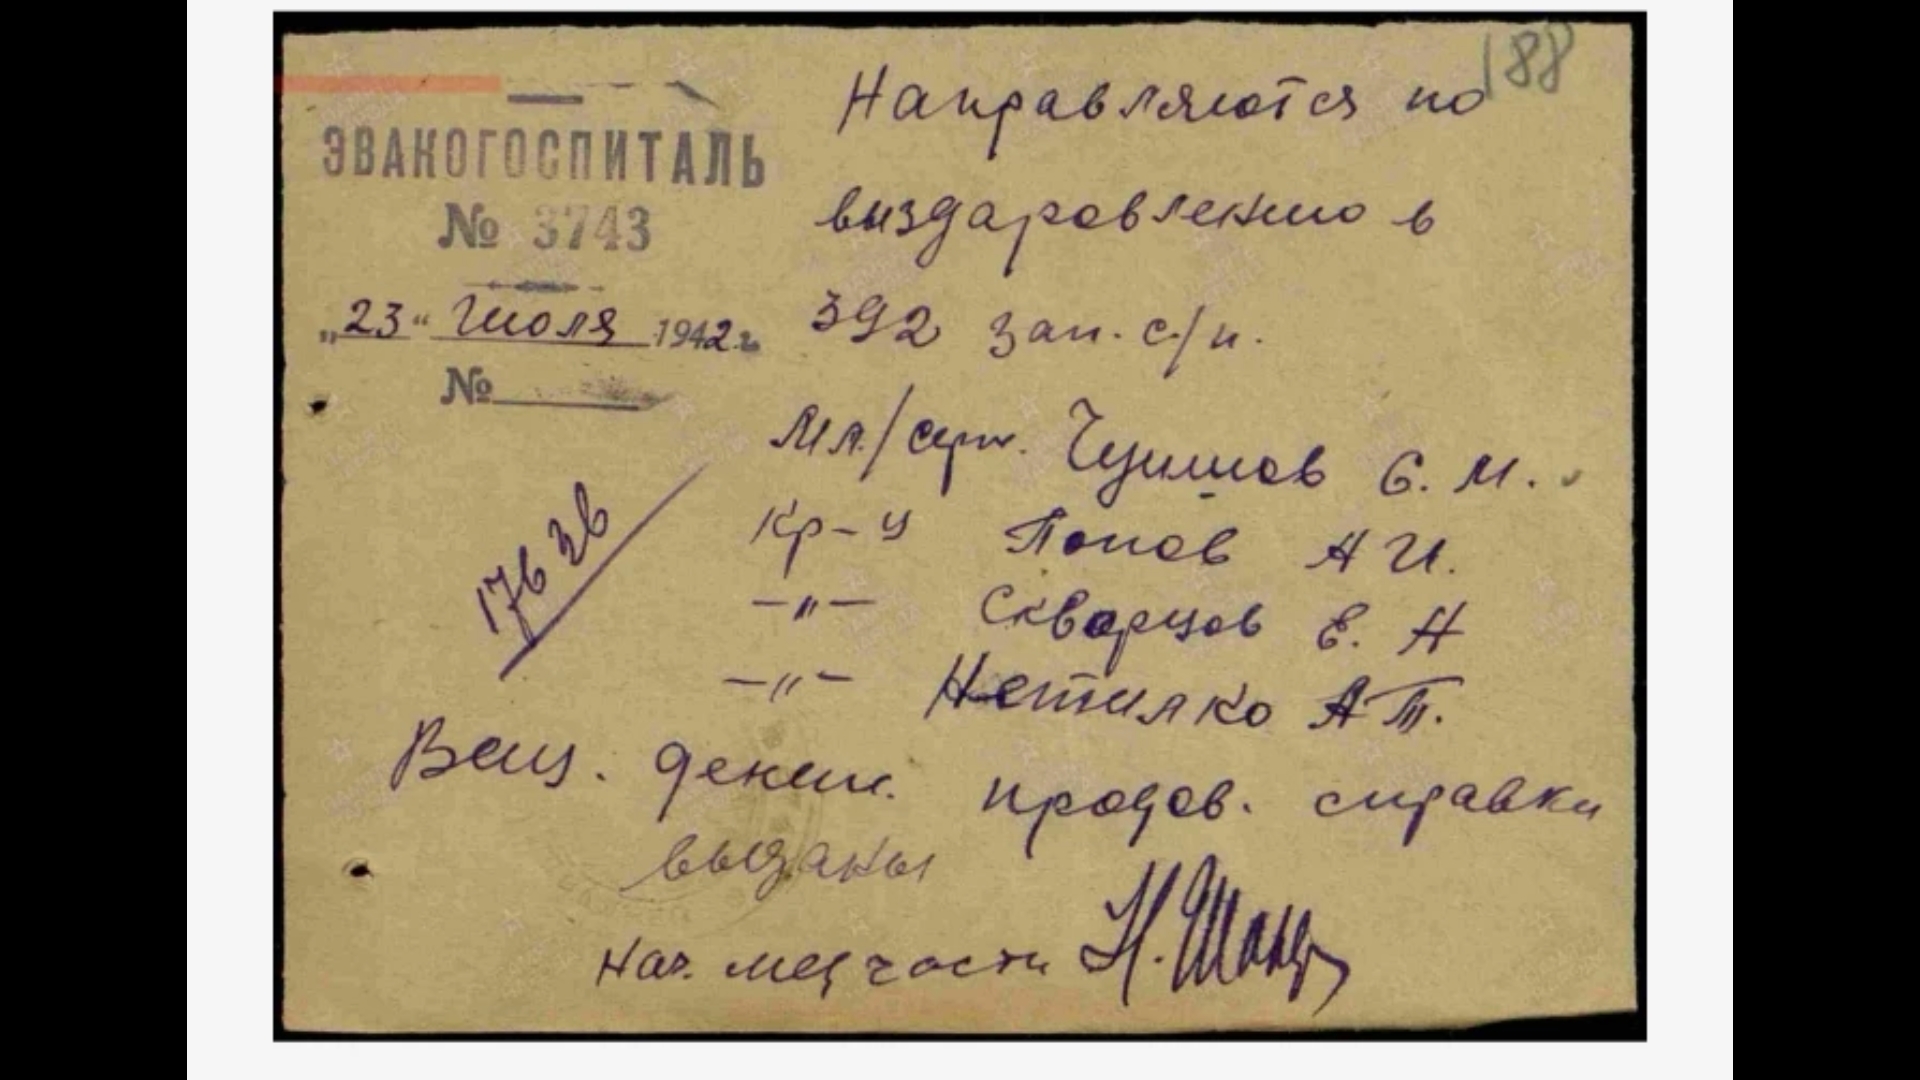 188
ЭВАКОГОСПИТАЛЬ
№ 3743
„23“ Июля 1942 г.
№
Направляются по
выздаровлению в
392 зап. с/п.
Мл/серж. С. М.
Кр-ц Попов А И.
–„– Скворцов Е. Н
–„– Нетилко А Т.
176 зв
Вещ. денеж. продов. справки
выданы
Нач. мед части